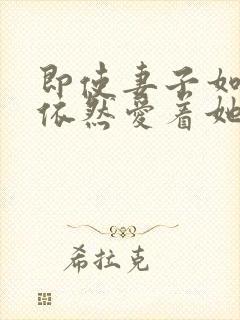 即使妻子如
依然愛着她
希拉克